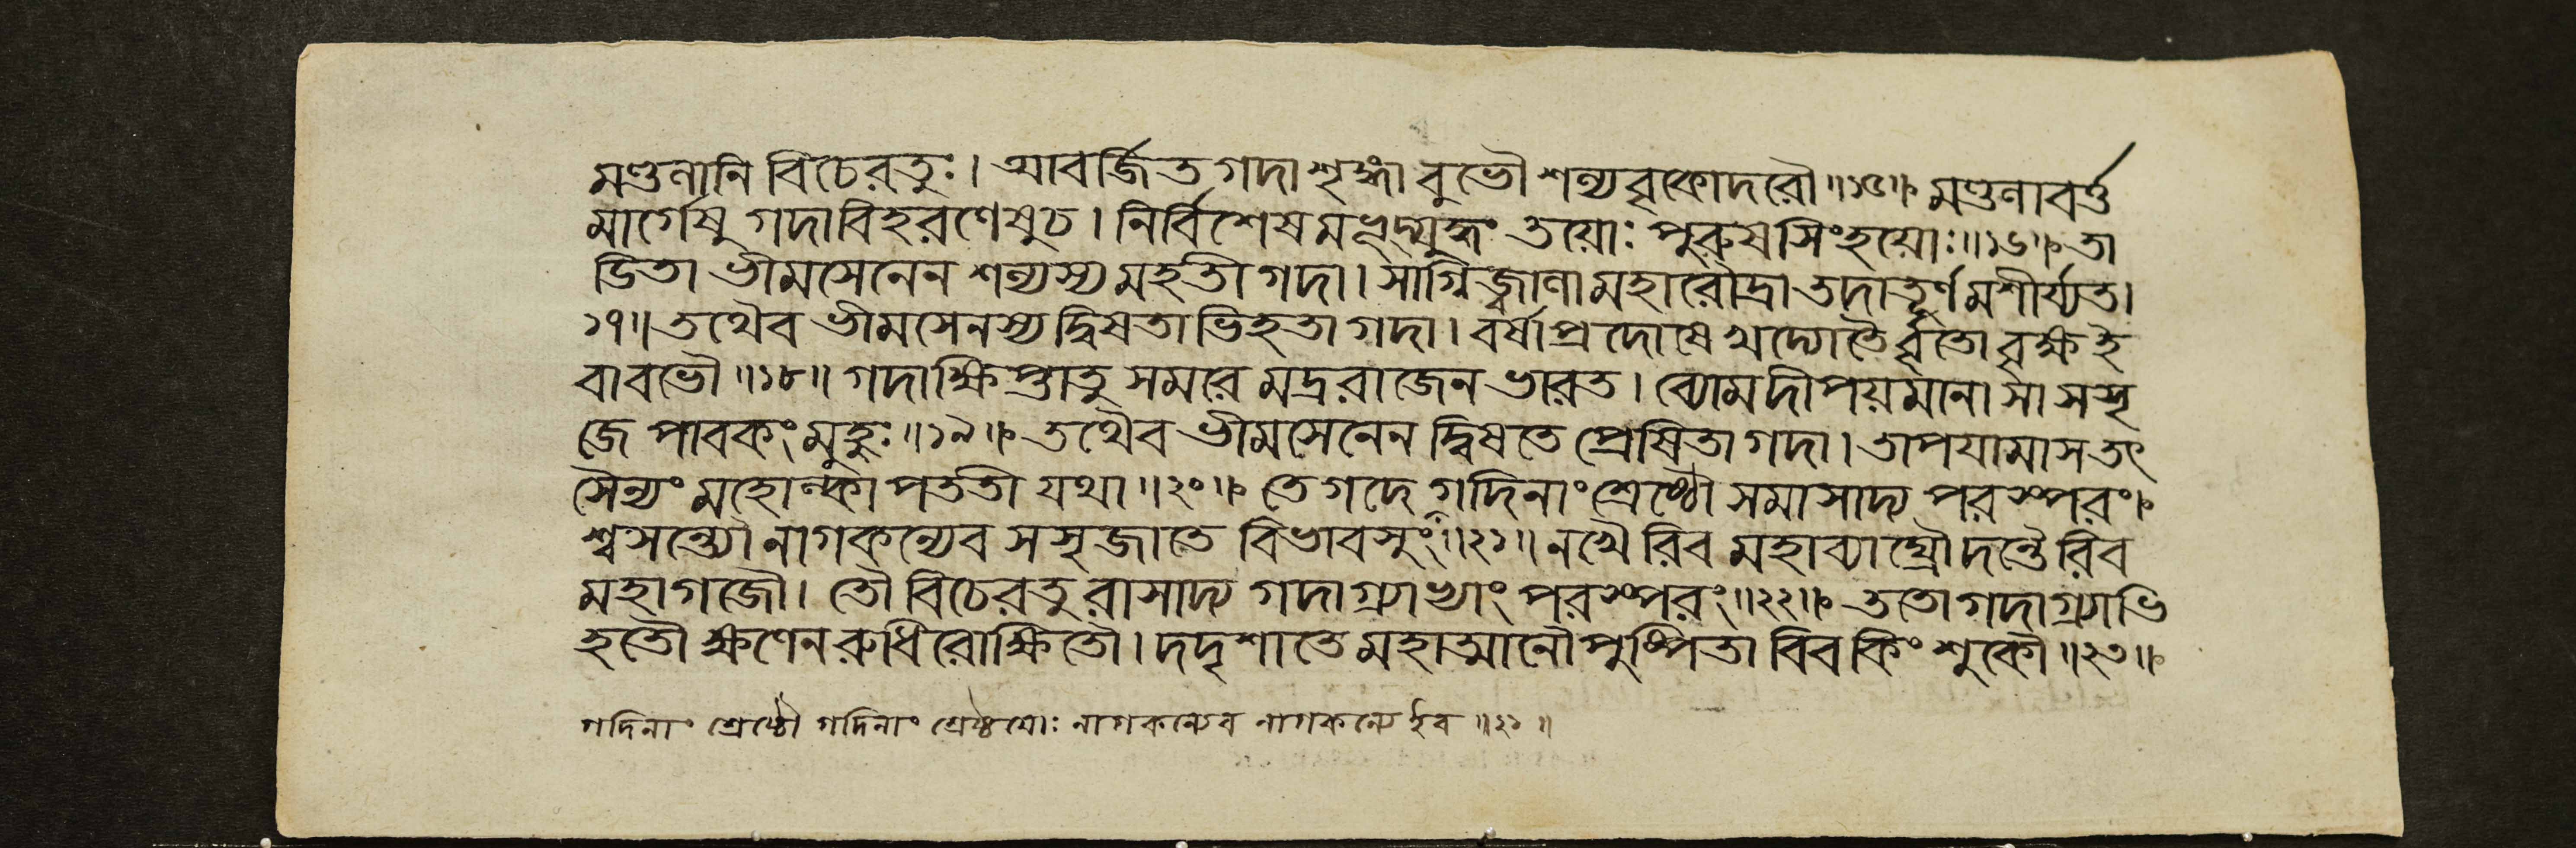 মণ্ডলানি বিচেরতুঃ। আবর্জিতগদাশৃঙ্গাবুভৌ শল্যবৃকোদরৌ॥১৫॥ মণ্ডলাবর্ত্ত
মার্গেষু গদাবিহরণেষুচ। নির্বিশেষমভূদ্যুদ্ধং তয়োঃ পুরুষসিংহয়োঃ॥১৬॥ তা
ডিতা ভীমসেনেন শল্যস্য মহতী গদা। সাগ্নিজ্বালা মহারৌদ্রা তদাতূর্ণমশীর্য্যত।
১৭॥ তথৈব ভীমসেনস্য দ্বিষতাভিহতা গদা। বর্ষাপ্রদোষে খদ্যোতৈর্বৃতো বৃক্ষ ই
বাবভৌ॥১৮॥ গদাক্ষিপ্তাতু সমরে মদ্ররাজেন ভারত। ব্যোমদীপয়মানা সা সসৃ
জে পাবকং মুহুঃ॥১৯॥ তথৈব ভীমসেনেন দ্বিষতে প্রেষিতা গদা। তাপযামাস তৎ
সৈন্যং মহোল্কা পততী যথা॥২০॥ তে গদে গদিনাং শ্রেষ্ঠৌ সমাসাদ্য পরস্পরং॥
শ্বসন্ত্যৌ নাগকন্যেব সসৃজাতে বিভাবসুং॥২১॥ নখৈরিব মহাব্যাঘ্রৌ দন্তৈরিব
মহাগজৌ। তৌ বিচেরতুরাসাদ্য গদাগ্র্যাভ্যাং পরস্পরং॥২২॥ ততো গদাগ্র্যাভি
হতৌ ক্ষণেন রুধিরোক্ষিতৌ। দদৃশাতে মহাত্মানৌ পুষ্পিতাবিব কিংশুকৌ॥২৩॥
গদিনাং শ্রেষ্ঠৌ গদিনাং শ্রেষ্ঠয়োঃ নাগকন্যেব নাগকন্যে ইব॥২১॥